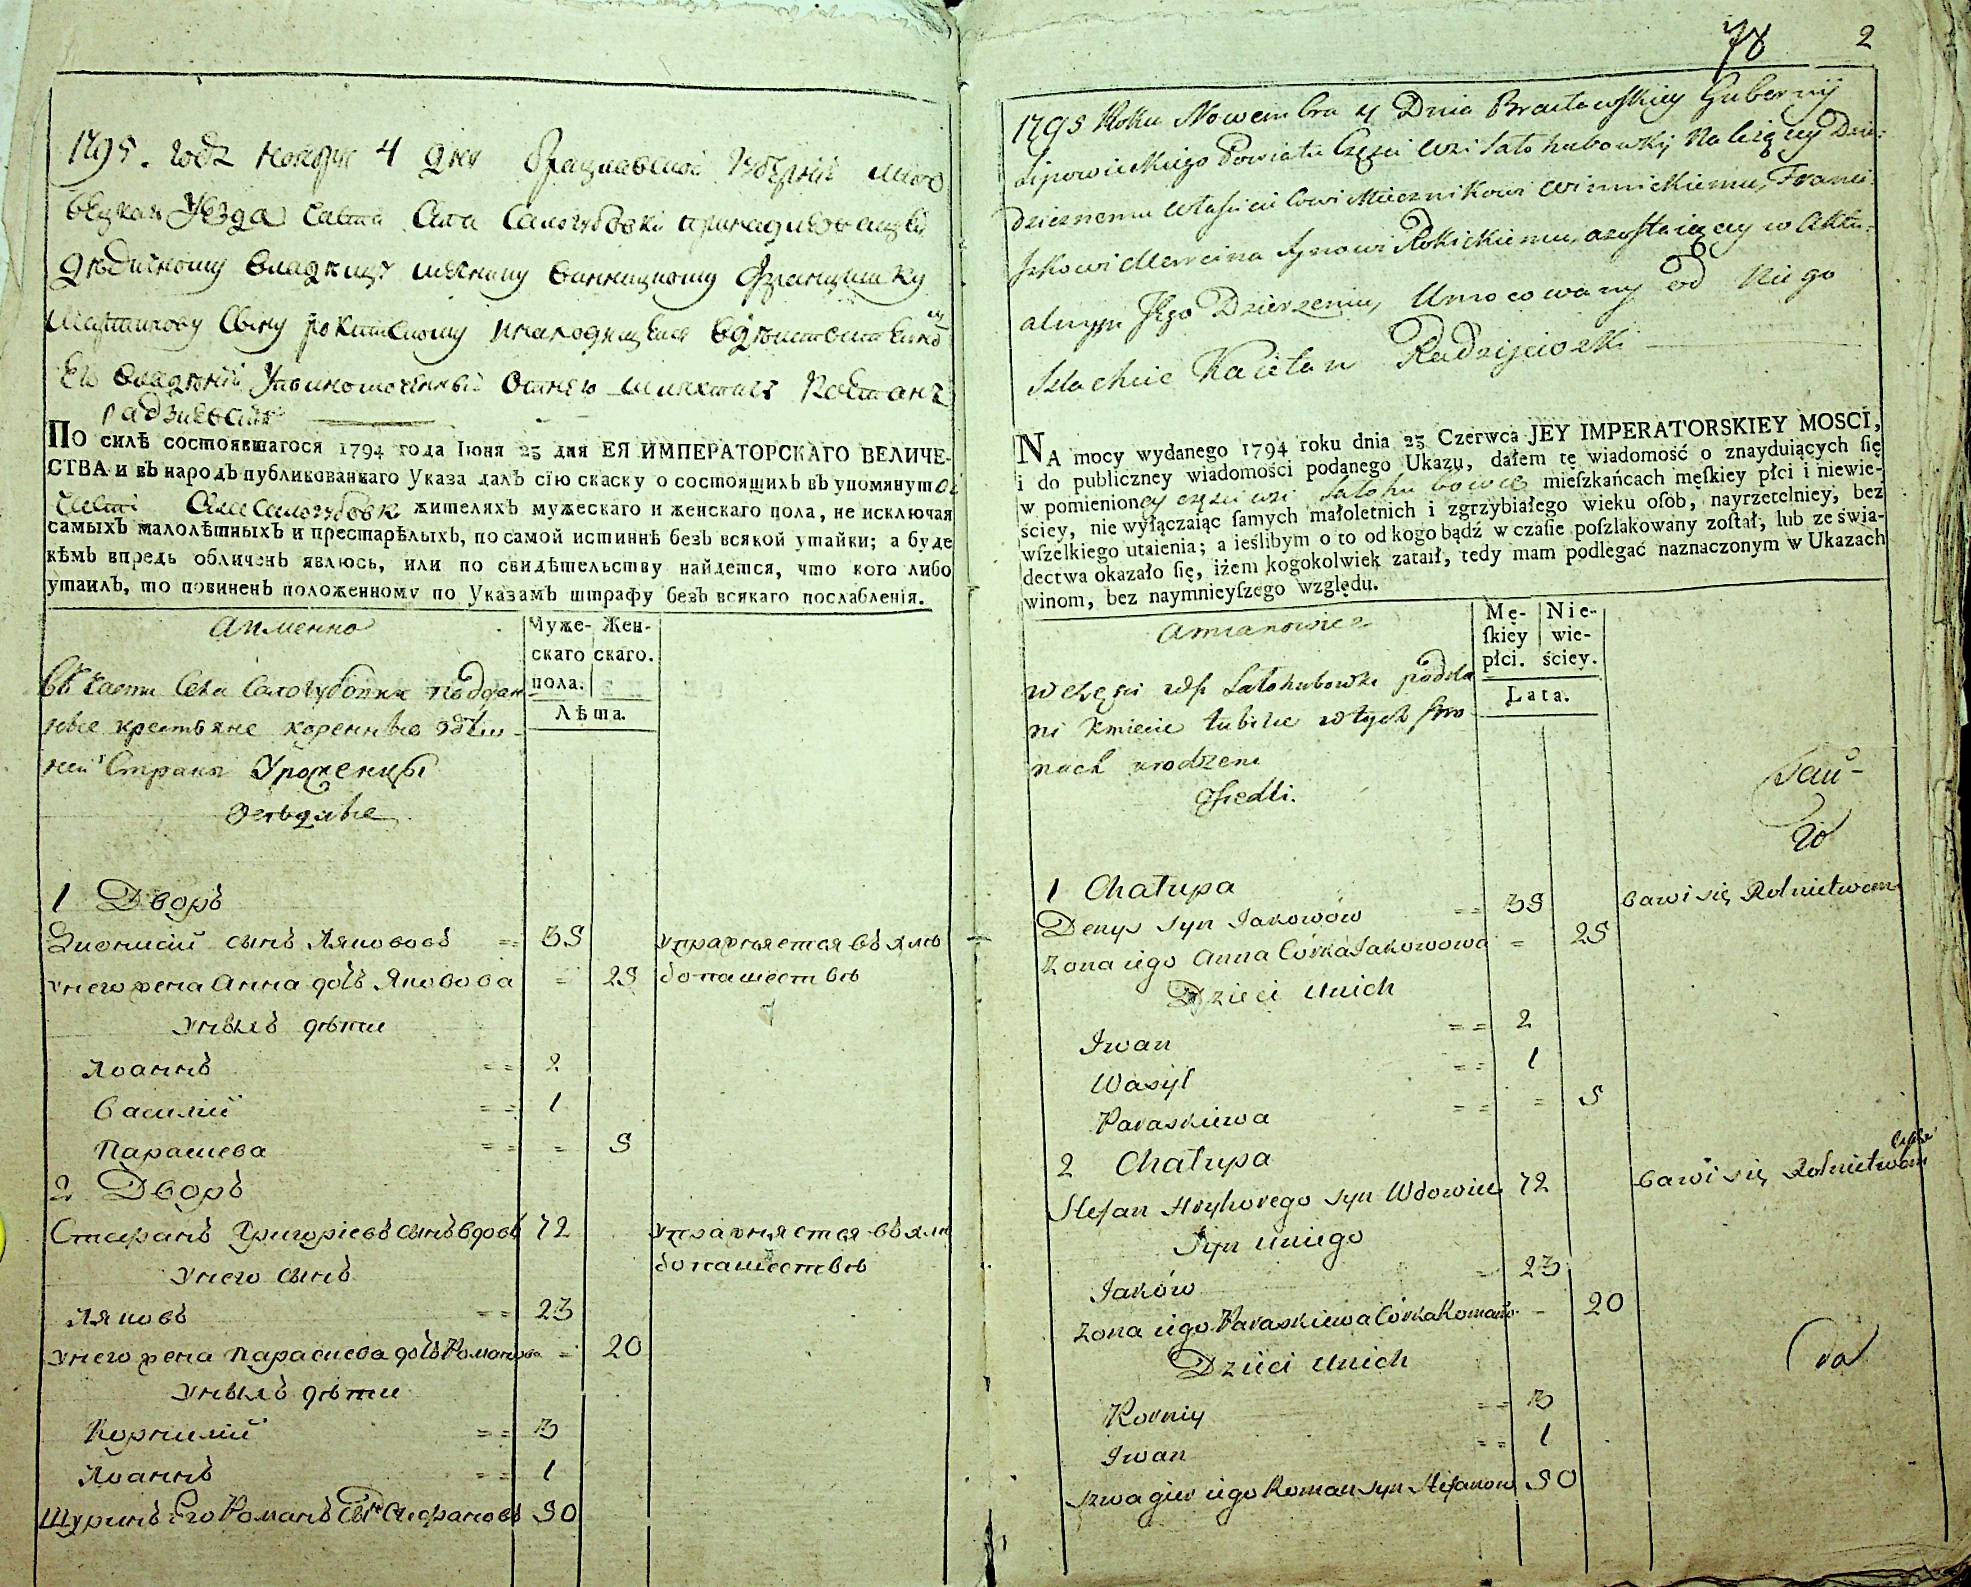 1795. года ноября 4 дня Брацлавской Губерніи Липо
вецкаго Уезда части Села Сологубовки принадлежащей
дедичному владельцу мечнику винницкому Францишку
Мартинову Сыну рокицкому и находящейся в действительном
Ево владении Уполномоченный от него шляхтич Каетанъ
радзиевский
ПО силѣ состоявшагося 1794 года Іюня 23 дня ЕЯ ИМПЕРАТОРСКАГО ВЕЛИЧЕ-
СТВА и въ народъ публикованнаго Указа далъ сію скаску о состоящихъ въ упомянутой
части Селе Сологубовки жителяхъ мужескаго и женскаго пола, не исключая
самыхъ малолѣтныхъ и престарѣлыхъ, по самой истиннѣ безъ всякой утайки; а буде
кѣмъ впредь обличенъ явлюсь, или по свидѣтельству найдется, что кого либо
утаилъ, то повиненъ положенному по Указамъ штрафу безъ всякаго послабленія.
Аименно
Муже-
скаго
пола.
Жен-
скаго.
Лѣта.
Въ части Села Сологубовки поддан
ные крестьяне коренные здеш-
ней Страны Уроженцы
оселые
1 Дворъ
Дионисий сынъ Яковов 35 упражняется въ хле
бопашестве
у него жена Анна дочь Яковова = 25
У них дети
Иоаннъ = = 2
Василий = = 1
Парасцева = = = 5
2 Дворъ
Стефанъ Григориевъ сынъ вдовъ 72 упражняется въ хле
бопашестве
У него сынъ
Яковъ = = 23
у него жена Парасцева дочь Романова = 20
У них дети
Корнилий = = 3
Иоаннъ = = 1
Шуринъ Его Романъ Сынъ Стефановъ 50
78 2
1795 Roku Nowembra 4 Dnia Bracławskiey Gubernij
Lipowieckiego Powiatu Części wsi Sałohubowki Należącey Dzie-
dzicznemu właścicielowi Miecznikowi winnickiemu, Franci-
szkowi Marcina Synowi Rokickiemu, a zostaiącey w Aktu-
alnym Jego Dzierzeniu, Umocowany od Niego
Szlachcic Kaietan Radziieiowski
NA mocy wydanego 1794 roku dnia 23 Czerwca JEY IMPERATORSKIEY MOSCI,
i do publiczney wiadomości podanego Ukazu, dałem tę wiadomość o znayduiących ſię
w pomienioney części wsi Sałohubowce mieſzkańcach męſkiey płci i niewie-
ściey, nie wyłączaiąc ſamych małoletnich i zgrzybiałego wieku oſób, nayrzetelniey, bez
wſzelkiego utaienia; a ieślibym o to od kogo bądź w czaſie poſzlakowany zoſtał, lub ze świa-
dectwa okazało ſię, iżem kogokolwiek zataił, tedy mam podlegać naznaczonym w Ukazach
winom, bez naymnieyſzego względu.
Amianowicie
Mę-
ſkiey
płci.
Nie-
wie-
ściey.
Lata.
w części wsi Sałohubowki podda
ni kmiecie tubilce w tych stro
nach urodzeni
Osiedli.
1 Chałupa
Denys syn Jakowów = = 35 bawi się Rolnictwem
Zona iego Anna Córka Jakowowa = 25
Dzieci u nich
Iwan = = 2
Wasyl = = 1
Paraskiewa = = = 5
2 Chałupa
Stefan Hryhorego syn Wdowiec 72 bawi się Rolnictwem
Syn u niego
Jaków = 23
Zona iego Paraskiewa Córka Romano - 20
Dzieci u nich
Korniy = = 3
Iwan = = 1
Szwagier iego Roman syn Stefanow 50